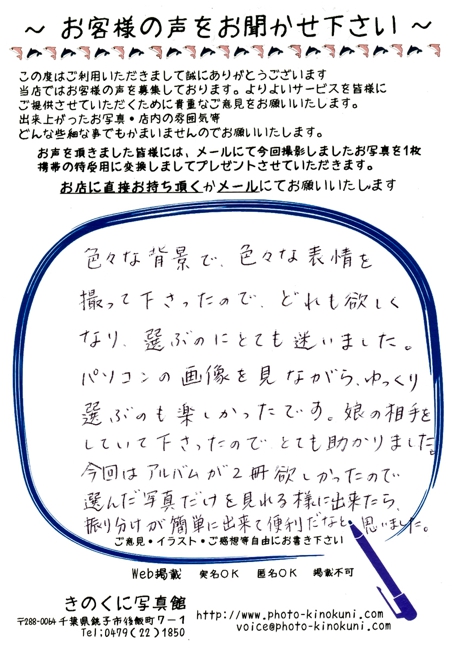 ～ お客様の声をお聞かせ下さい ～
この度はご利用いただきまして誠にありがとうございます
当店ではお客様の声を募集しております。よりよいサービスを皆様に
ご提供させていただくために貴重なご意見をお願いいたします。
出来上がったお写真・店内の雰囲気等
どんな些細な事でもかまいませんのでお願いいたします。
お声を頂きました皆様には、メールにて今回撮影しましたお写真を1枚
携帯の待受用に変換しましてプレゼントさせていただきます。
お店に直接お持ち頂くかメールにてお願いいたします
色々な背景で、色々な表情を
撮って下さったので、どれも欲しく
なり、選ぶのにとても迷いました。
パソコンの画像を見ながら、ゆっくり
選ぶのも楽しかったです。娘の相手を
していて下さったのでとても助かりました。
今回はアルバムが2冊欲しかったので
選んだ写真だけを見れる様に出来たら、
振り分けが簡単に出来て便利だなと思いました。
ご意見・イラスト・ご感想等自由にお書き下さい
Web掲載 実名OK 匿名OK 掲載不可
きのくに写真館
〒288-0064千葉県銚子市後飯町7-1
Tel;0479(22)1850
http://www.photo-kinokuni.com/
voice@photo-kinokuni.com